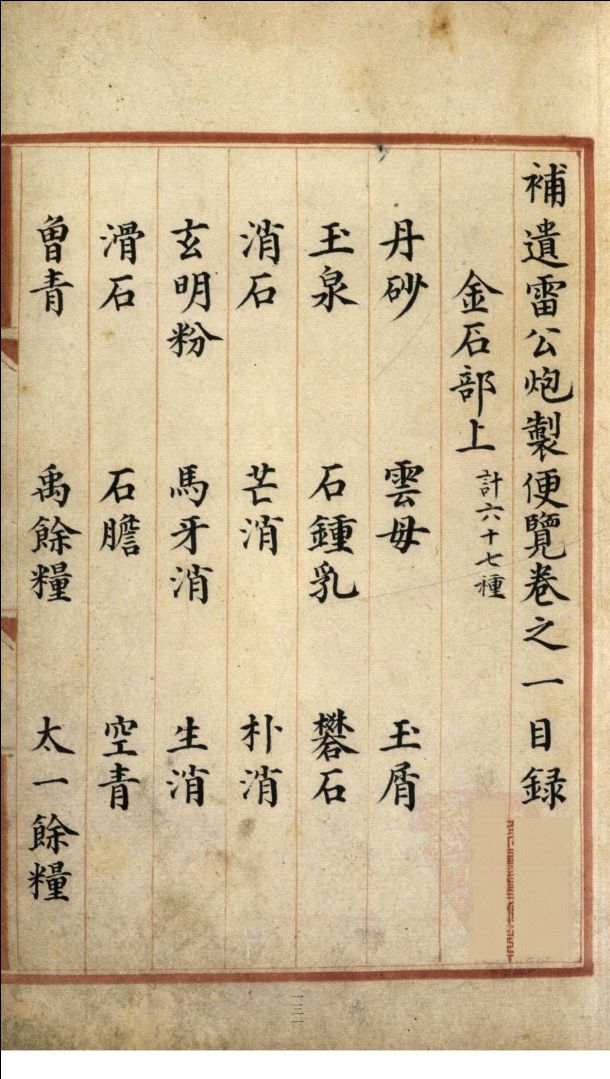 補遺雷公炮製便覽卷之一目録
金石部上 計六十七種
丹砂 雲母 玉屑
玉泉 石鍾乳 礬石
消石 芒消 朴消
玄明粉 馬牙消 生消
滑石 石膽 空青
曾青 禹餘糧 太一餘糧
一三一